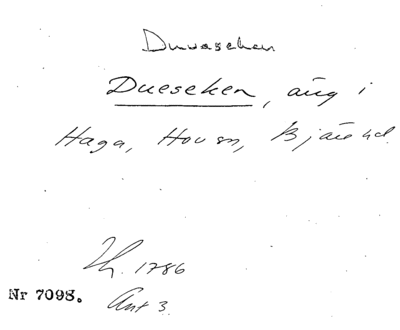 Duvaseken
Dueseken, äng i
Haga, Hovsn, Bjäre hd.
Lh. 1786
Nr 7098. Akt 3